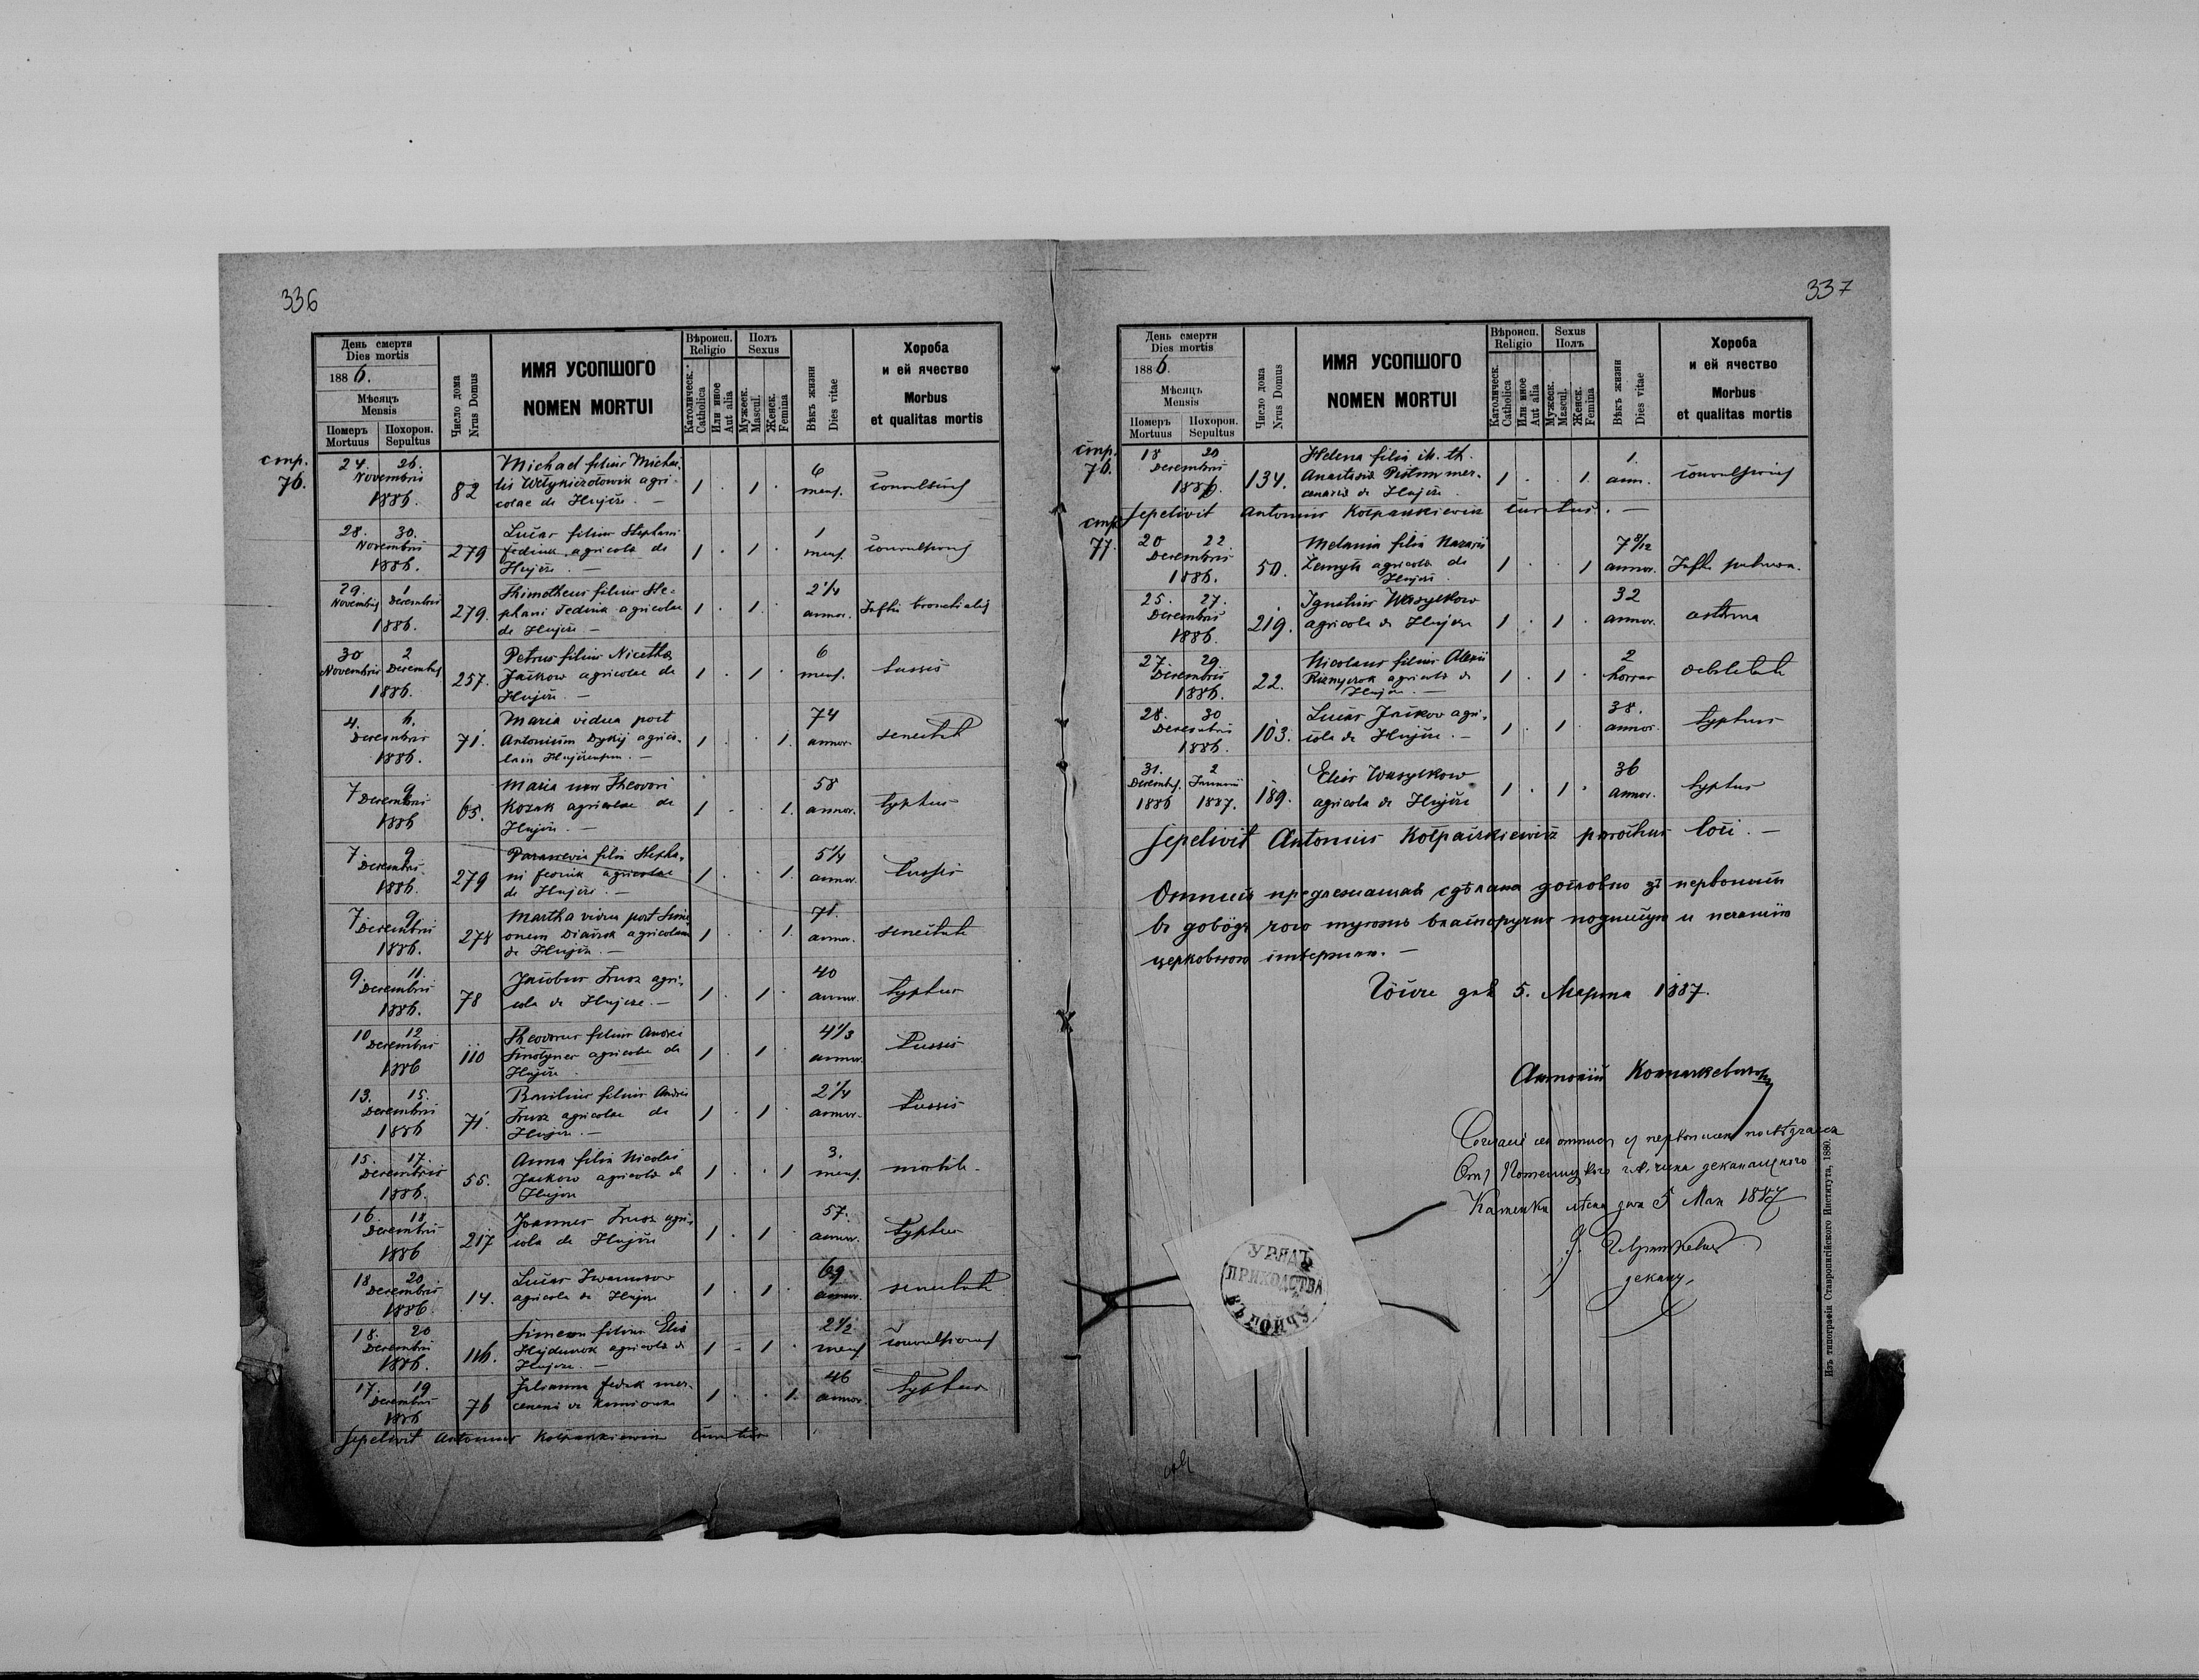 336
День смерти
Dies mortis
1886.
Мѣсяцъ
Mensis
Померъ Mortuus
Похорон. Sepultus
Число дома
Nrus Domus
ИМЯ УСОПШОГО
NOMEN MORTUI
Вѣроисп.
Religio
Католическ.
Catholica
Или иное
Aut alia
Полъ
Sexus
Мужеск.
Mascul.
Женск.
Femina
Вѣкъ жизни
Dies vitae
Хороба
и ей ячество
Morbus
et qualitas mortis
стр. 76.
24. 26. Novembris 1886. 82 Michael filius Michae-
lis agri-
colae de Hujcze. — 1 . 1 . 6 mens. convulsiones
28. 30. Novembris 1886. 279 Lucas filius Stephani
Fedink agricola de
Hujcze. — 1 . 1 . 1 mens. convulsiones
29. Novembris 1 Decembris 1886. 279. Thimotheus filius Ste-
phani Fedink agricolae
de Hujcze — 1 . 1 . 2 1/4 annor. bronchialis
30 Novembris 2 Decembris 1886. 257. Petrus filius Nicetha
Jackow agricolae de
Hujcze. — 1 . 1 . 6 mens. tussis
4. 6. Decembris 1886. 71. Maria vidua post
Antonium Dykij agrico-
lam — 1 . . 1. 74 annor. senectute
7 9 Decembris 1886 65. Maria uxor Theodori
Kozak agricolae de
Hujcze. — 1 . . 1. 58 annor. typhus
7. 9 Decembris 1886. 279 Parascevia filia Stepha-
ni Fedink agricolae
de Hujcze. — 1 . . 1. 5 1/4 annor. tussis
7. 9. Decembris 1886. 278 Martha vidua post Sime-
onem agricolam
de Hujcze. — 1 . . 1. 71. annor. senectute
9. 11. Decembris 1886. 78 Jacobus Frusz agri-
cola de Hujcze. — 1 . 1 . 40 annor. typhus
10 12 Decembris 1886 110 Theodorus filius Andrei
agricolae de
Hujcze. 1 . 1 . 4 1/3 annor. tussis
13. 15. Decembris 1886 71. Basilius filius Andrei
Frusz agricolae de
Hujcze. — 1 . 1 . 2 1/4 annor. tussis
15. 17. Decembris 1886. 55. Anna filia Nicolai
Jackow agricola de
Hujcze 1 . . 1 3. mens. morbili
16. 18 Decembris 1886 217 Joannes Frusz agri-
cola de Hujcze 1 . 1 . 57. annor. typhus
18 20 Decembris 1886 14. Lucas
agricola de Hujcze 1 . 1 . 69 annor. senectute
18. 20 Decembris 1886. 116. Simeon filius Elia
Hajdurok agricola de
Hujcze. — 1 - 1 . 2 1/2. mens. convulsiones
17. 19 Decembris 1886 76 Julianna Fedak mer-
cenaria de Kamionka 1 . . 1. 46 annor. typhus
Sepelivit Antonius Kolpaczkiewicz curatus
337
День смерти
Dies mortis
1886.
Мѣсяцъ
Mensis
Померъ Mortuus
Похорон. Sepultus
Число дома
Nrus Domus
ИМЯ УСОПШОГО
NOMEN MORTUI
Вѣроисп.
Religio
Католическ.
Catholica
Или иное
Aut alia
Sexus
Полъ
Мужеск.
Mascul.
Женск.
Femina
Вѣкъ жизни
Dies vitae
Хороба
и ей ячество
Morbus
et qualitas mortis
стр. 76.
18 20 Decembris 1886. 134. Helena filia il. th.
Anastasia mer-
cenaria de Hujcze. 1 . . 1. 1. ann. convulsiones
Sepelivit Antonius Kolpaczkiewicz curatus. —
стр. 77.
20 22. Decembris 1886. 50. Melania filia Nazarii
agricola de
Hujcze. 1 . . 1 7 8/12 annor.
25. 27. Decembris 1886. 219. Ignatius Wasylkow
agricola de Hujcze 1 . 1 . 32 annor. asthma
27. 29. Decembris 1886. 22. Nicolaus filius Alexii
agricola de
Hujcze. — 1 . 1 . 2 horrar
28. 30 Decembris 1886. 103. Lucas Jackow agri-
cola de Hujcze. — 1 . 1 38. annor. typhus
31. Decembr. 1886 2 Januarii 1887. 189. Elias Wasylkow
agricola de Hujcze 1 . 1 . 36 annor. typhus
Sepelivit Antonius Kolpaczkiewicz parochus loci. —
предлежащая сдѣлана дословно зъ
въ доводъ чого власноручно подписую и печатію
церковною ствержаю. —
дня 5. Марта 1887.
Антоній Колпачкевичъ
дня 5 Мая 1887
деканъ
УРЯДЪ
ПРИХОДСТВА
Изъ типографіи Ставропигійского Института, 1880.